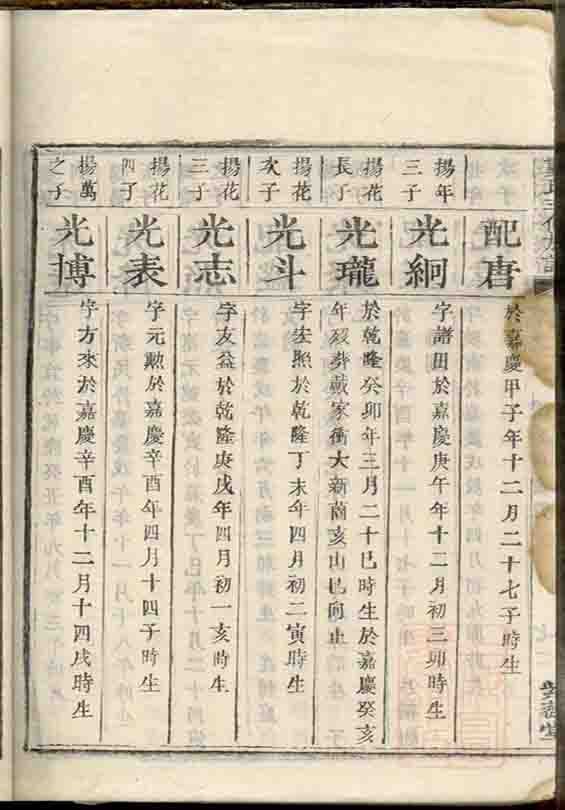 配唐
於嘉慶甲子年十二月二十七子時生
揚年
三子
光絅
字譜田於嘉慶庚午年十二月初三卯時生
揚花
長子
光瓏
於乾隆癸卯年三月二十巳時生於嘉慶癸亥
年歿葬戴家衝大新南亥山巳向止
揚花
次子
光斗
字宏照於乾隆丁未年四月初二寅時生
揚花
三子
光志
字友益於乾隆庚戌年四月初一亥時生
揚花
四子
光表
字元勲於嘉慶辛酉年四月十四子時生
揚萬
之子
光博
字方來於嘉慶辛酉年十二月十四戌時生